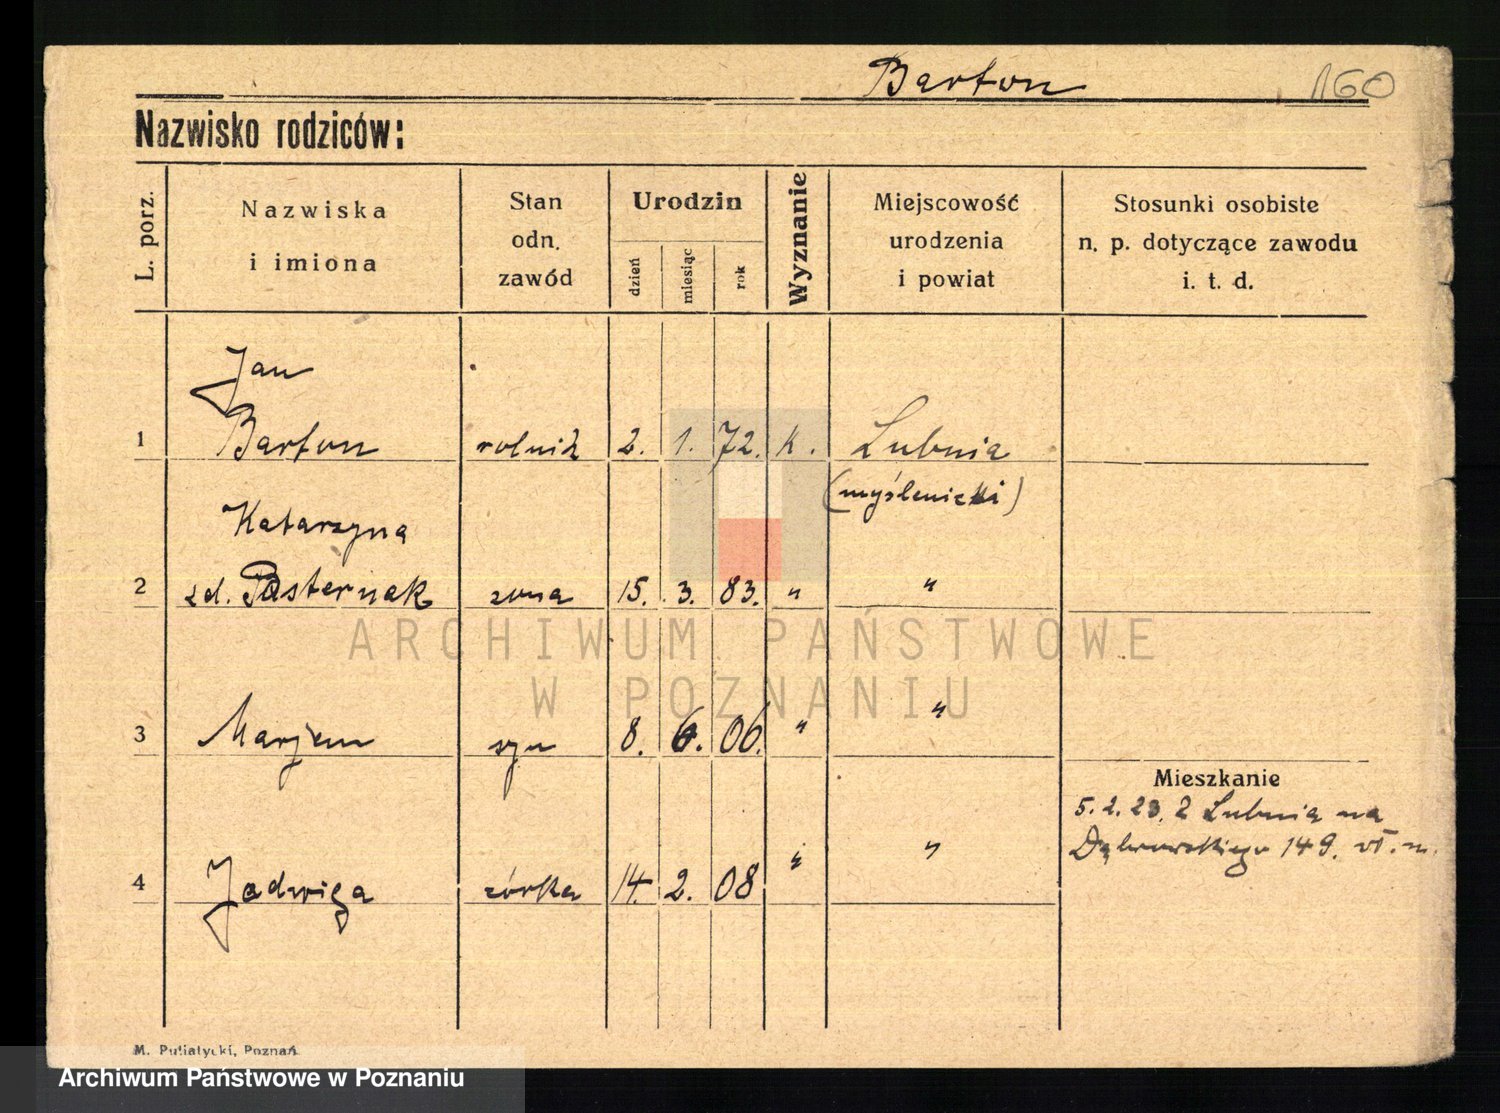 Barton 160
Nazwisko rodziców:
L. porz.
Nazwiska
i imiona
Stan
odn.
zawód
Urodzin
dzień
miesiąc
rok
Wyznanie
Miejscowość
urodzenia
i powiat
Stosunki osobiste
n. p. dotyczące zawodu
i. t. d.
Jan
1 Barton rolnik 2. 1. 72. k. Lubnia
(myślenicki)
Katarzyna
2 zd. Pasternak żona 15. 3. 83. " "
ARCHIWUM PAŃSTWOWE
W POZNANIU
3 Marjan syn 8. 6. 06. " "
Mieszkanie
5. 2. 23. z Lubnia na
Dąbrowskiego 149. wł. m.
4 Jadwiga córka 14. 2. 08 " "
M. Putiatycki, Poznań
Archiwum Państwowe w Poznaniu